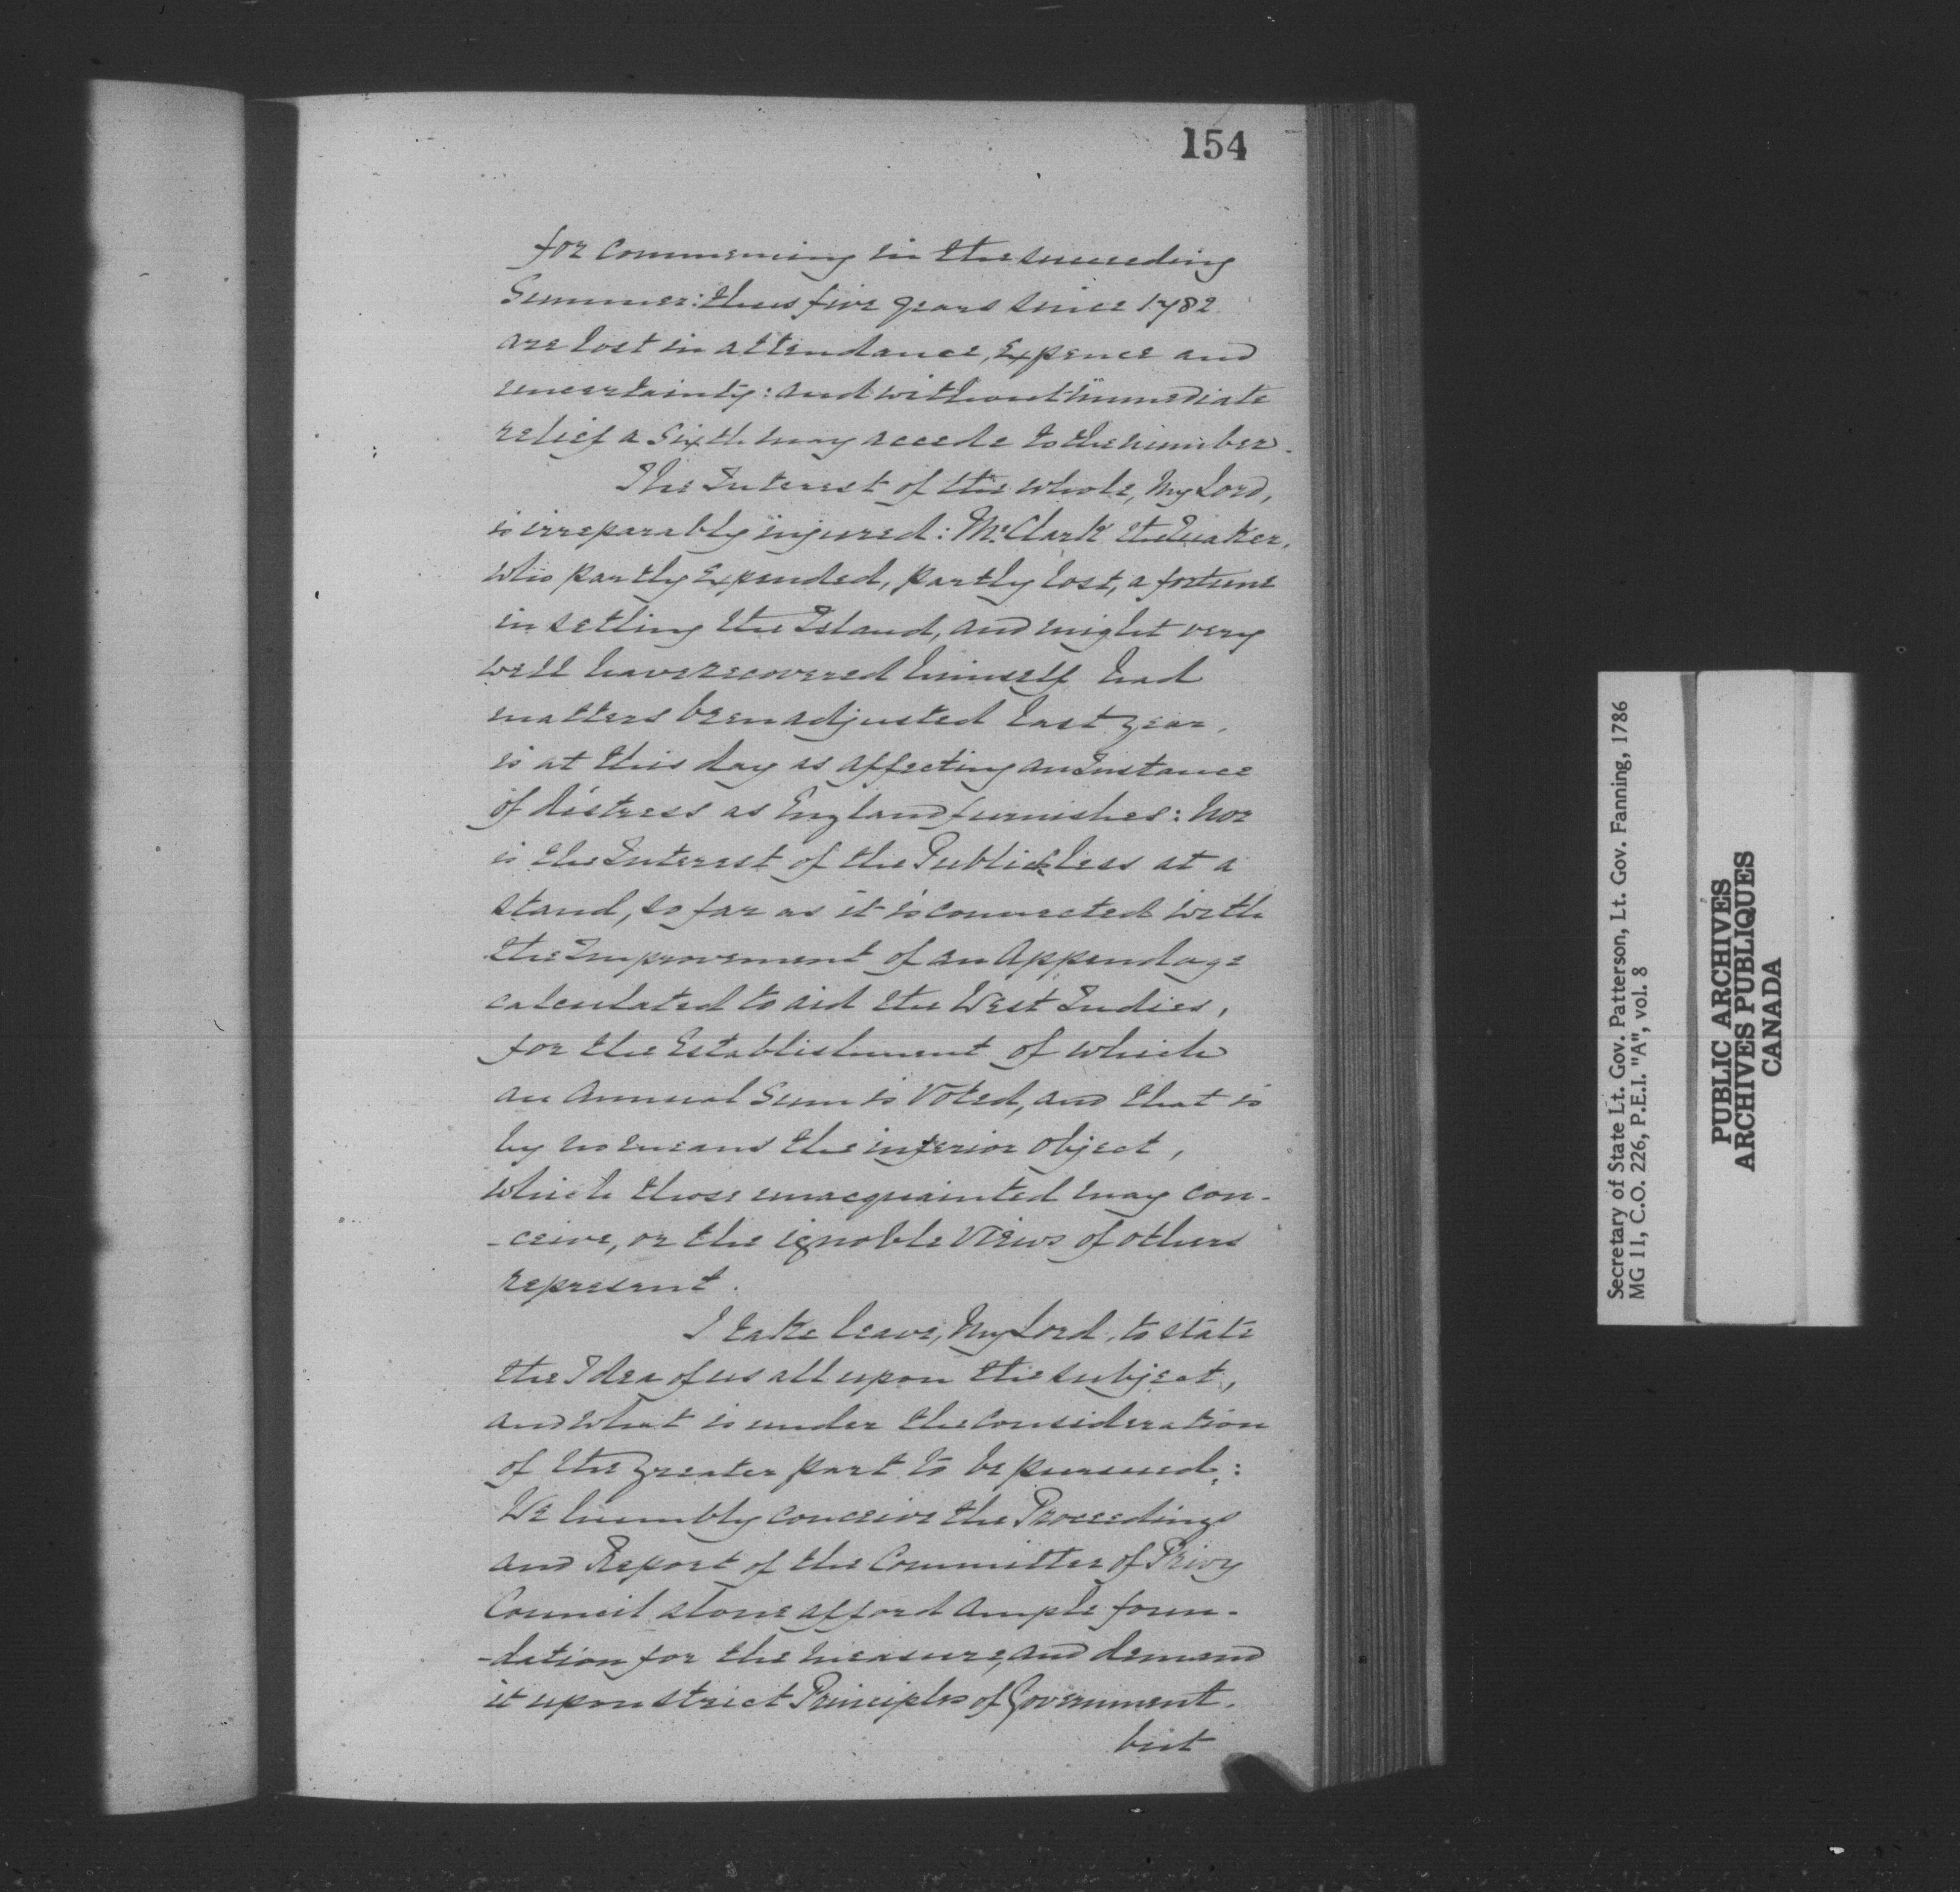 154
for commencing in the succeeding
Summer: thus five years since 1782
are lost in attendance, Expence and
uncertainty: and without immediate
relief a Sixth may accede to the number.
The Interest of the whole, My Lord,
is irreparably injured: Mr. Clark the Quaker,
who partly Expended, partly lost, a fortune
in setling the Island, and might very
well have recovered himself had
matters been adjusted last year,
is at this day as affecting an Instance
of distress as England furnishes: nor
is the Interest of the Publick less at a
stand, so far as it is connected with
the Improvement of an Appendage
calculated to aid the West Indies,
for the Establishment of which
an Annual Sum is Voted, and that is
by no means the inferior object,
which those unacquainted may con-
-ceive, or the ignoble Views of others
represent.
I take leave, My Lord, to state
the Idea of us all upon the subject,
and what is under the Consideration
of the greater part to be pursued:
We humbly conceive the Proceedings
and Report of the Committee of Privy
Council alone afford ample foun-
-dation for the measure, and demand
it upon strict Principles of Government.
but
Secretary of State Lt. Gov. Patterson, Lt. Gov. Fanning, 1786
MG 11, C.O. 226, P.E.I. "A", vol. 8
PUBLIC ARCHIVES
ARCHIVES PUBLIQUES
CANADA